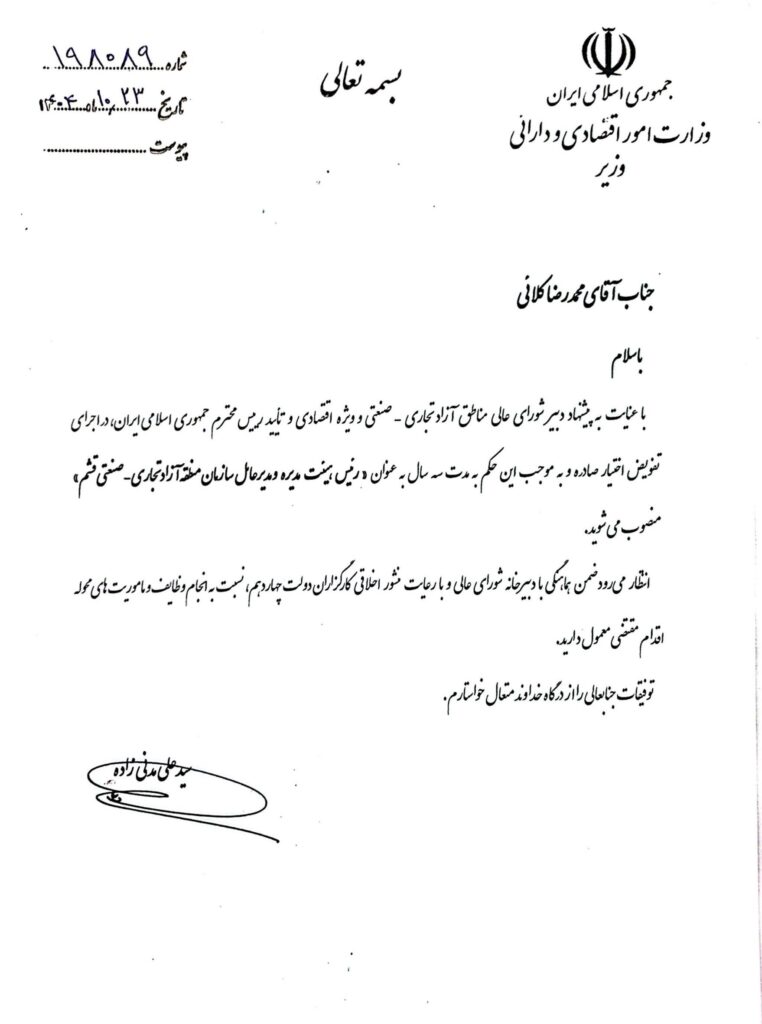 جمهوری اسلامی ایران
وزارت امور اقتصادی و دارائی
وزیر
بسمه تعالی
شماره ۱۹۸۰۸۹
تاریخ ۲۳ / ۱۰ ماه ۱۴۰۴
پیوست
جناب آقای محمدرضا کلائی
باسلام
با عنایت به پیشنهاد دبیر شورای عالی مناطق آزاد تجاری - صنعتی و ویژه اقتصادی و تأیید رییس محترم جمهوری اسلامی ایران، در اجرای
تفویض اختیار صادره و به موجب این حکم به مدت سه سال به عنوان « رئیس هیئت مدیره و مدیرعامل سازمان منطقه آزاد تجاری- صنعتی قشم»
منصوب می‌شوید.
انتظار می‌رود ضمن هماهنگی با دبیرخانه شورای عالی و با رعایت منشور اخلاقی کارگزاران دولت چهاردهم، نسبت به انجام وظایف و ماموریت‌های محوله
اقدام مقتضی معمول دارید.
توفیقات جنابعالی را از درگاه خداوند متعال خواستارم.
سید علی مدنی زاده